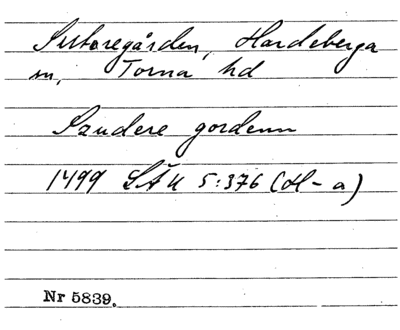 Sutaregården, Hardeberga
sn, Torna hd
Szudere gordenn
1499 LÄU 5:376 (H-a)
Nr 5839.